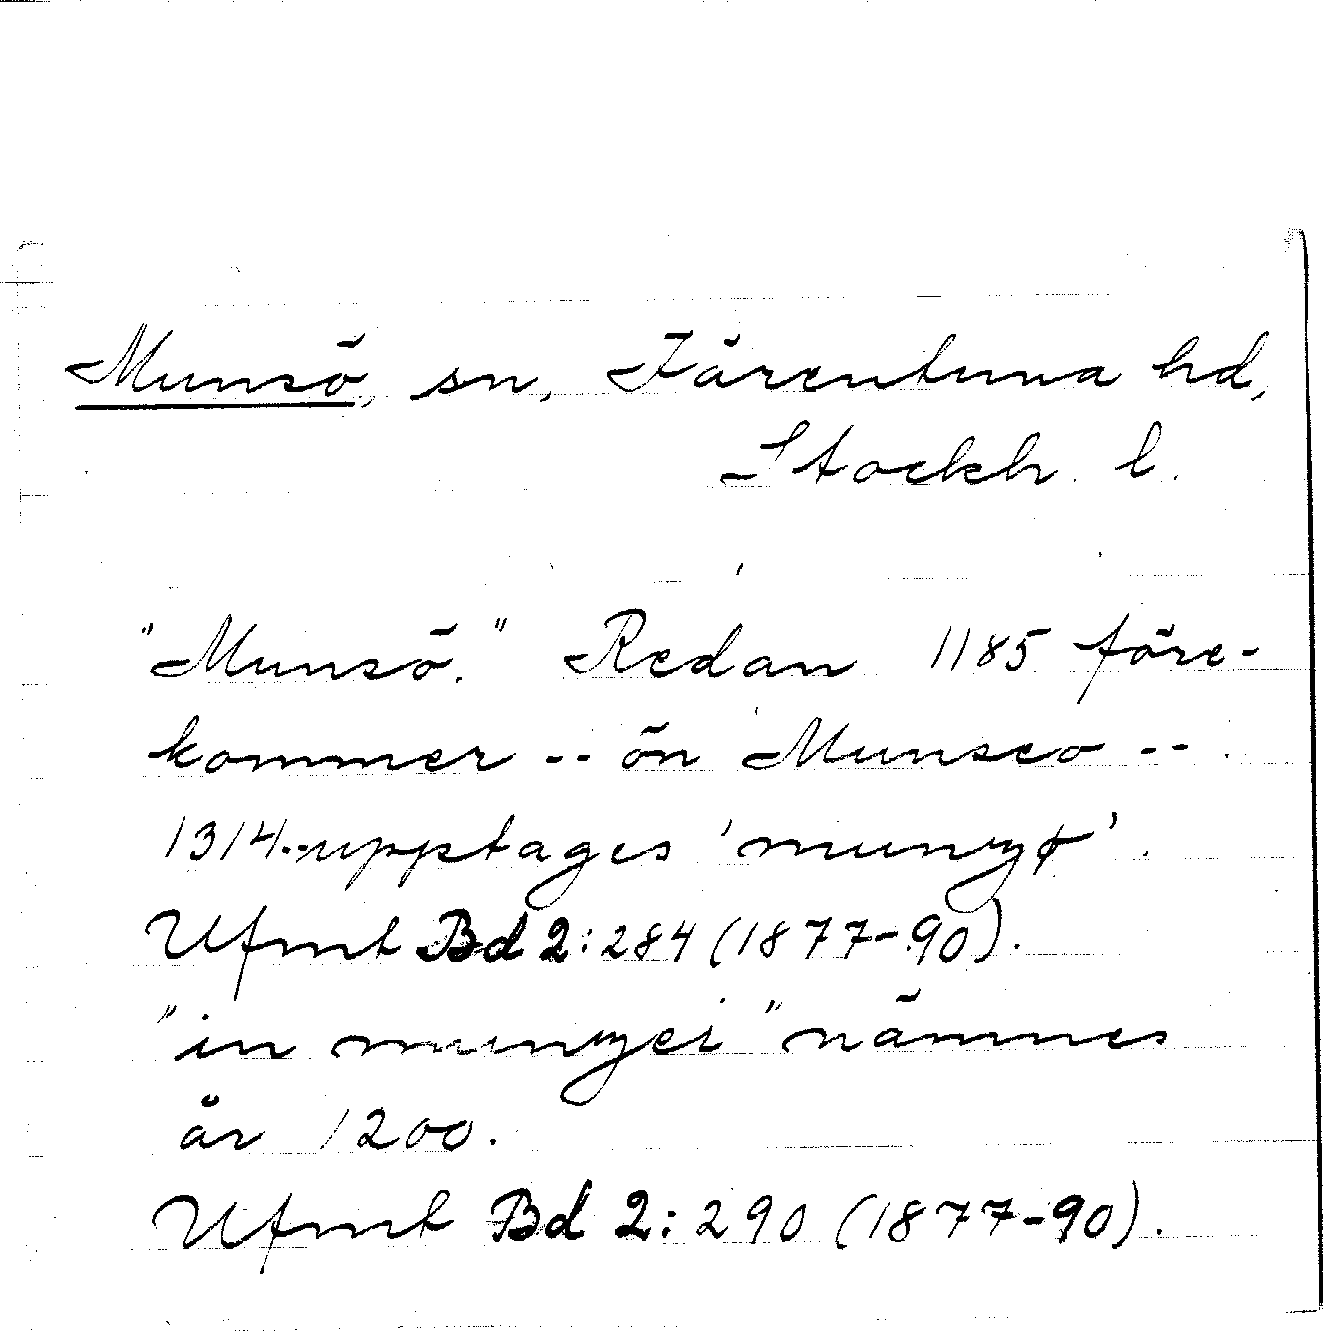 Munsö, sn, Färentuna hd,
Stockh. l.
"Munsö." Redan 1185 före-
kommer -- ön Munseo --.
1314--upptages 'munzø'.
Ufmt Bd 2:284 (1877-90).
"in munzei" nämnes
år 1200.
Ufmt Bd 2:290 (1877-90).